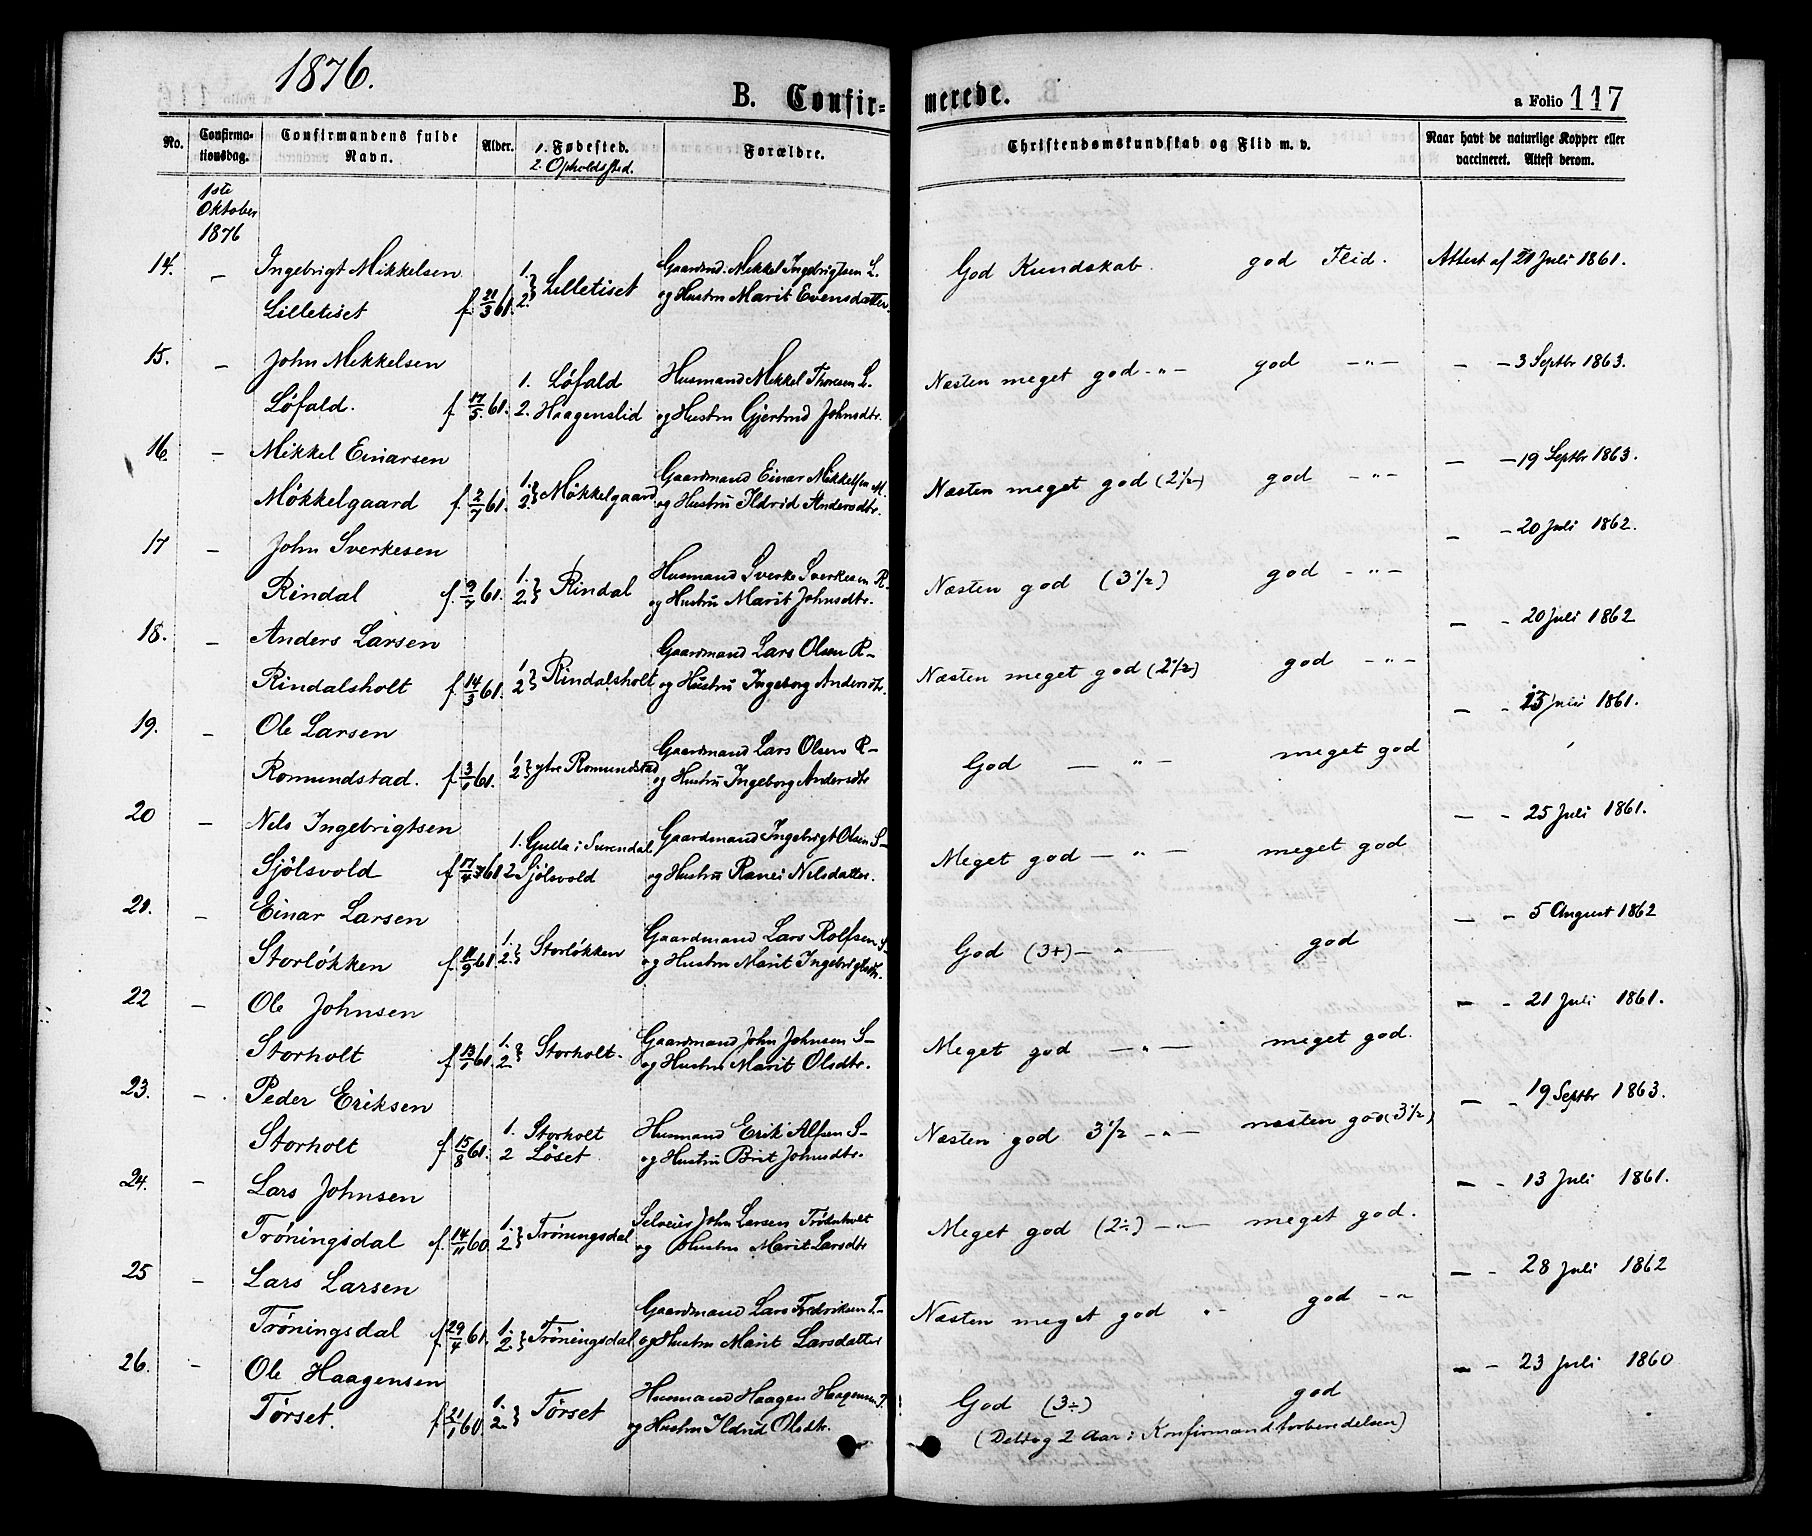 1876.
B. Confir-
merede.
a Folio 117
No.
Confirma-
tionsdag.
Confirmandens fulde
Navn.
Alder.
1. Fødested.
2. Opholdssted.
Forældre.
Christendomskundskab og Flid m. v.
Naar havt de naturlige Kopper eller
vaccineret. Attest derom.
1ste
Oktober
1876
14. – Ingebrigt Mikkelsen
Lilletiset f. 21/3 61. 1. 2. } Lilletiset
Gaardmd. Mikkel Ingebrigtsen L.
og Hustru Marit Evensdatter.
God Kundskab. god Flid. Attest af 21 Juli 1861.
15. – John Mikkelsen
Løfald. f. 17/5 61. 1. Løfald
2. Haagenslid
Husmand Mikkel Thoresen L.
og Hustru Gjertrud Johnsdtr.
Næsten meget god – „ – god – „ – – – 3 Septbr 1863.
16. – Mikkel Einarsen
Møkkelgaard f. 2/7 61. 1. 2. } Møkkelgaard
Gaardmand Einar Mikkelsen M.
og Hustru Ildrid Andersdtr.
Næsten meget god (2 1/2) god – „ – – – 19 Septbr 1863.
17 – John Sverkesen
Rindal f. 9/7 61. 1. 2. } Rindal
Husmand Sverke Sverkesen R.
og Hustru Marit Johnsdtr.
Næsten god (3 1/2) god – „ – – – 20 Juli 1862.
18. – Anders Larsen
Rindalsholt f. 14/3 61. 1. 2. } Rindalsholt
Gaardmand Lars Olsen R–
og Hustru Ingeborg Andersdtr.
Næsten meget god (2 1/2) god – „ – – – 20 Juli 1862
19. – Ole Larsen
Romundstad. f. 3/1 61. 1. 2. } ytre Romundstad
Gaardmand Lars Olsen R–
og Hustru Ingeborg Andersdtr
God – „ – meget god – – Juli 1861.
20 – Nils Ingebrigtsen
Sjølsvold f. 17/4 61 1. Gulla i Surendal
2. Sjølsvold
Gaardmand Ingebrigt Olsen S–
og Hustru Ranei Nilsdatter.
Meget god – „ – meget god – – 25 Juli 1861.
21. – Einar Larsen
Storløkken f. 11/9 61. 1. 2. } Storløkken
Gaardmand Lars Rolfsen S–
og Hustru Marit Ingebrigtsdtr.
God (3+) – „ – god – – 5 August 1862
22 – Ole Johnsen
Storholt f. 13/1 61. 1. 2. } Storholt.
Gaardmand John Johnsen S–
og Hustru Marit Olsdtr.
Meget god – „ – meget god. – – 21 Juli 1861.
23. – Peder Eriksen
Storholt f. 15/8 61. 1. Storholt
2 Løset
Husmand Erik Alfsen S–
og Hustru Brit Johnsdtr.
Næsten god 3 1/2 – „ – næsten god (3 1/2) – – 19 Septbr 1863.
24. – Lars Johnsen
Trøningsdal f. 14/11 60. 1. 2. } Trøningsdal
Selveier John Larsen
og Hustru Marit Larsdtr
Meget god (2÷) – „ – meget god. – – 13 Juli 1861.
25 – Lars Larsen
Trøningsdal f. 29/4 61. 1. 2. } Trøningsdal
Gaardmand Lars Fredriksen T–
og Hustru Marit Larsdatter
Næsten meget god „ – god – „ – – 28 Juli 1862
26. – Ole Haagensen
Tørset. f. 21/1 60. 1. 2. } Tørset
Husmand Haagen Haagensen T.
og Hustru Ildrid Olsdtr.
God (3÷) god – – 23 Juli 1860
(Deltog 2 Aar i Konfirmandforberedelsen)